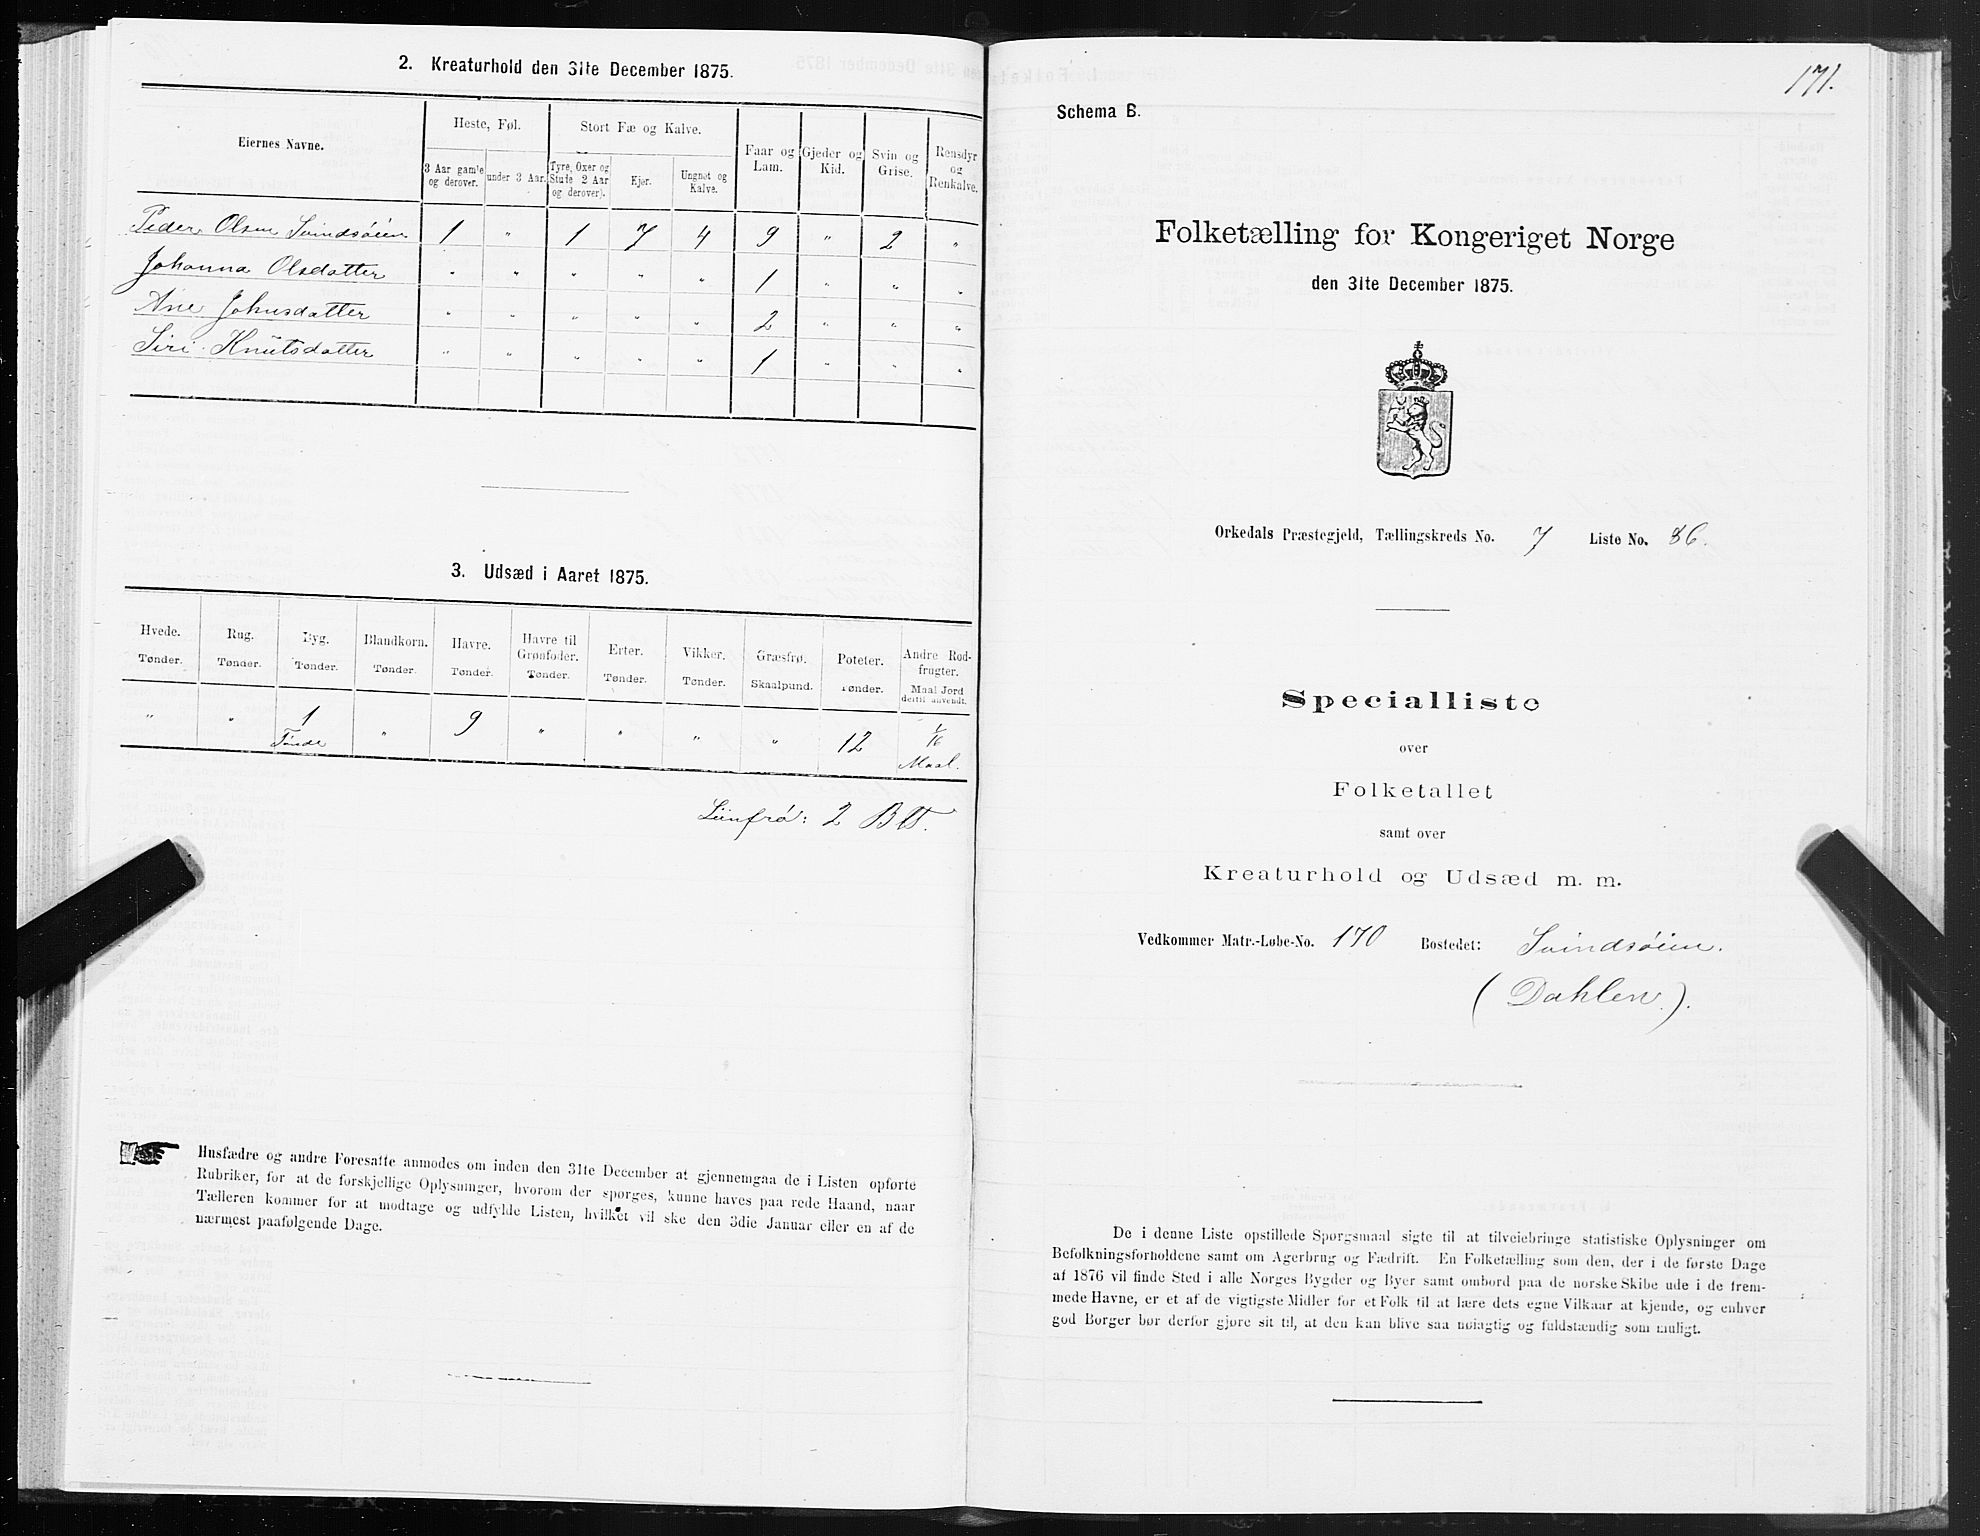 2. Kreaturhold den 31te December 1875.
Eiernes Navne.
Heste, Føl.
Stort Fæ og Kalve.
Faar og Lam.
Gjeder og Kid.
Svin og Grise.
Rensdyr og Renkalve.
3 Aar gamle og derover.
under 3 Aar.
Tyre, Oxer og Stude 2 Aar og derover).
Kjør.
Ungnøt og Kalve.
Peder Olsen Svindsøien 1 " 1 7 4 9 " 2 "
Johanna Olsdatter " " " " " 1 " " "
Ane Johnsdatter " " " " " 2 " " "
Siri Knutsdatter " " " " " 1 " " "
3. Udsæd i Aaret 1875.
Hvede. Tønder.
Rug. Tønder.
Byg. Tønder.
Blandkorn. Tønder.
Havre. Tønder.
Havre til Grønfoder. Tønder.
Erter. Tønder.
Vikker. Tønder.
Græsfrø. Skaalpund.
Poteter. Tønder.
Andre Rodfrugter. Maal Jord dertil anvendt.
" " 1 Tønde " 9 " " " " 12 1/16 Maal.
Liinfrø: 2
Husfædre og andre Foresatte anmodes om inden den 31te December at gjennemgaa de i Listen opførte
Rubriker, for at de forskjellige Oplysninger, hvorom der spørges, kunne haves paa rede Haand, naar
Tælleren kommer for at modtage og udfylde Listen, hvilket vil ske den 3die Januar eller en af de
nærmest paafølgende Dage.
171.
Schema B.
Folketælling for Kongeriget Norge
den 31te December 1875.
Orkedals Præstegjeld, Tællingskreds No. 7 Liste No. 86.
Specialliste
over
Folketallet
samt over
Kreaturhold og Udsæd m. m.
Vedkommer Matr.-Løbe-No. 170 Bostedet: Svindsøien.
(Dahlen.).
De i denne Liste opstillede Spørgsmaal sigte til at tilveiebringe statistiske Oplysninger om
Befolkningsforholdene samt om Agerbrug og Fædrift. En Folketælling som den, der i de første Dage
af 1876 vil finde Sted i alle Norges Bygder og Byer samt ombord paa de norske Skibe ude i de frem-
mede Havne, er et af de vigtigste Midler for et Folk til at lære dets egne Vilkaar at kjende, og enhver
god Borger bør derfor gjøre sit til, at den kan blive saa nøiagtig og fuldstændig som muligt.